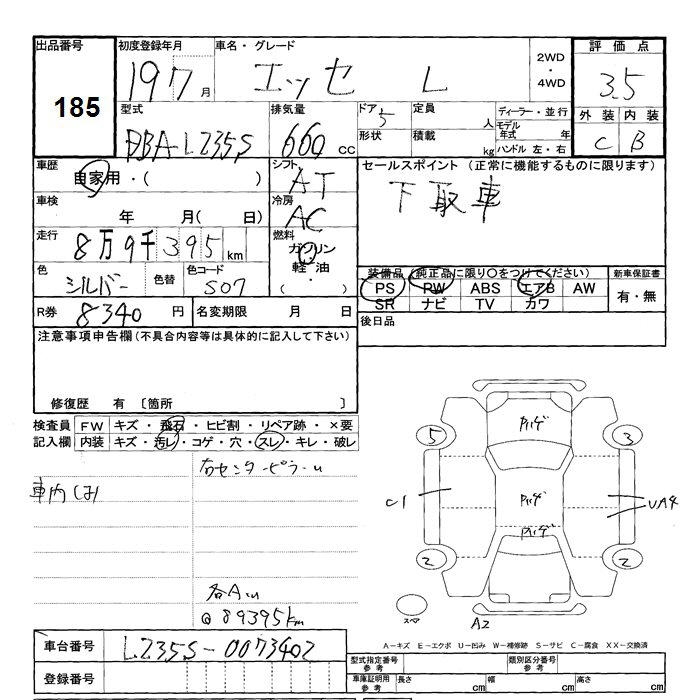 出品番号 初度登録年月 車名・グレード 2WD・4WD 評価点
185 19 7月 エッセ L 3.5
型式 排気量 ドア 定員 人 ディーラー・並行 外装 内装
DBA-L235S 660 CC 5 形状 積載 kg モデル年式 年 ハンドル 左・右 C B
車歴 シフト セールスポイント（正常に機能するものに限ります）
自家用・( ) AT 下取車
車検 冷房
年 月( 日) AC
走行 8万9千395km 燃料
ガソリン
色 シルバー 色替 色コード S07 軽油・( )
装備品（純正品に限り○をつけてください） 新車保証書
PS PW ABS エアB AW 有・無
SR ナビ TV カワ
R券 8340円 名変期限 月 日 後日品
注意事項申告欄（不具合内容等は具体的に記入して下さい）
修復歴 有 〔箇所 〕
検査員 FW キズ・飛石・ヒビ割・リペア跡・×要
記入欄 内装 キズ・汚レ・コゲ・穴・スレ・キレ・破レ
右センターピラーu
車内
各Au
@89395km
5 3
C1 UA4
2 2
スペア A2
車台番号 L235S-0073402
A－キズ E－エクボ U－凹み W－補修跡 S－サビ C－腐食 XX－交換済
登録番号
型式指定番号 参考 類別区分番号 参考
車庫証明用 参考 長さ cm 幅 cm 高さ cm